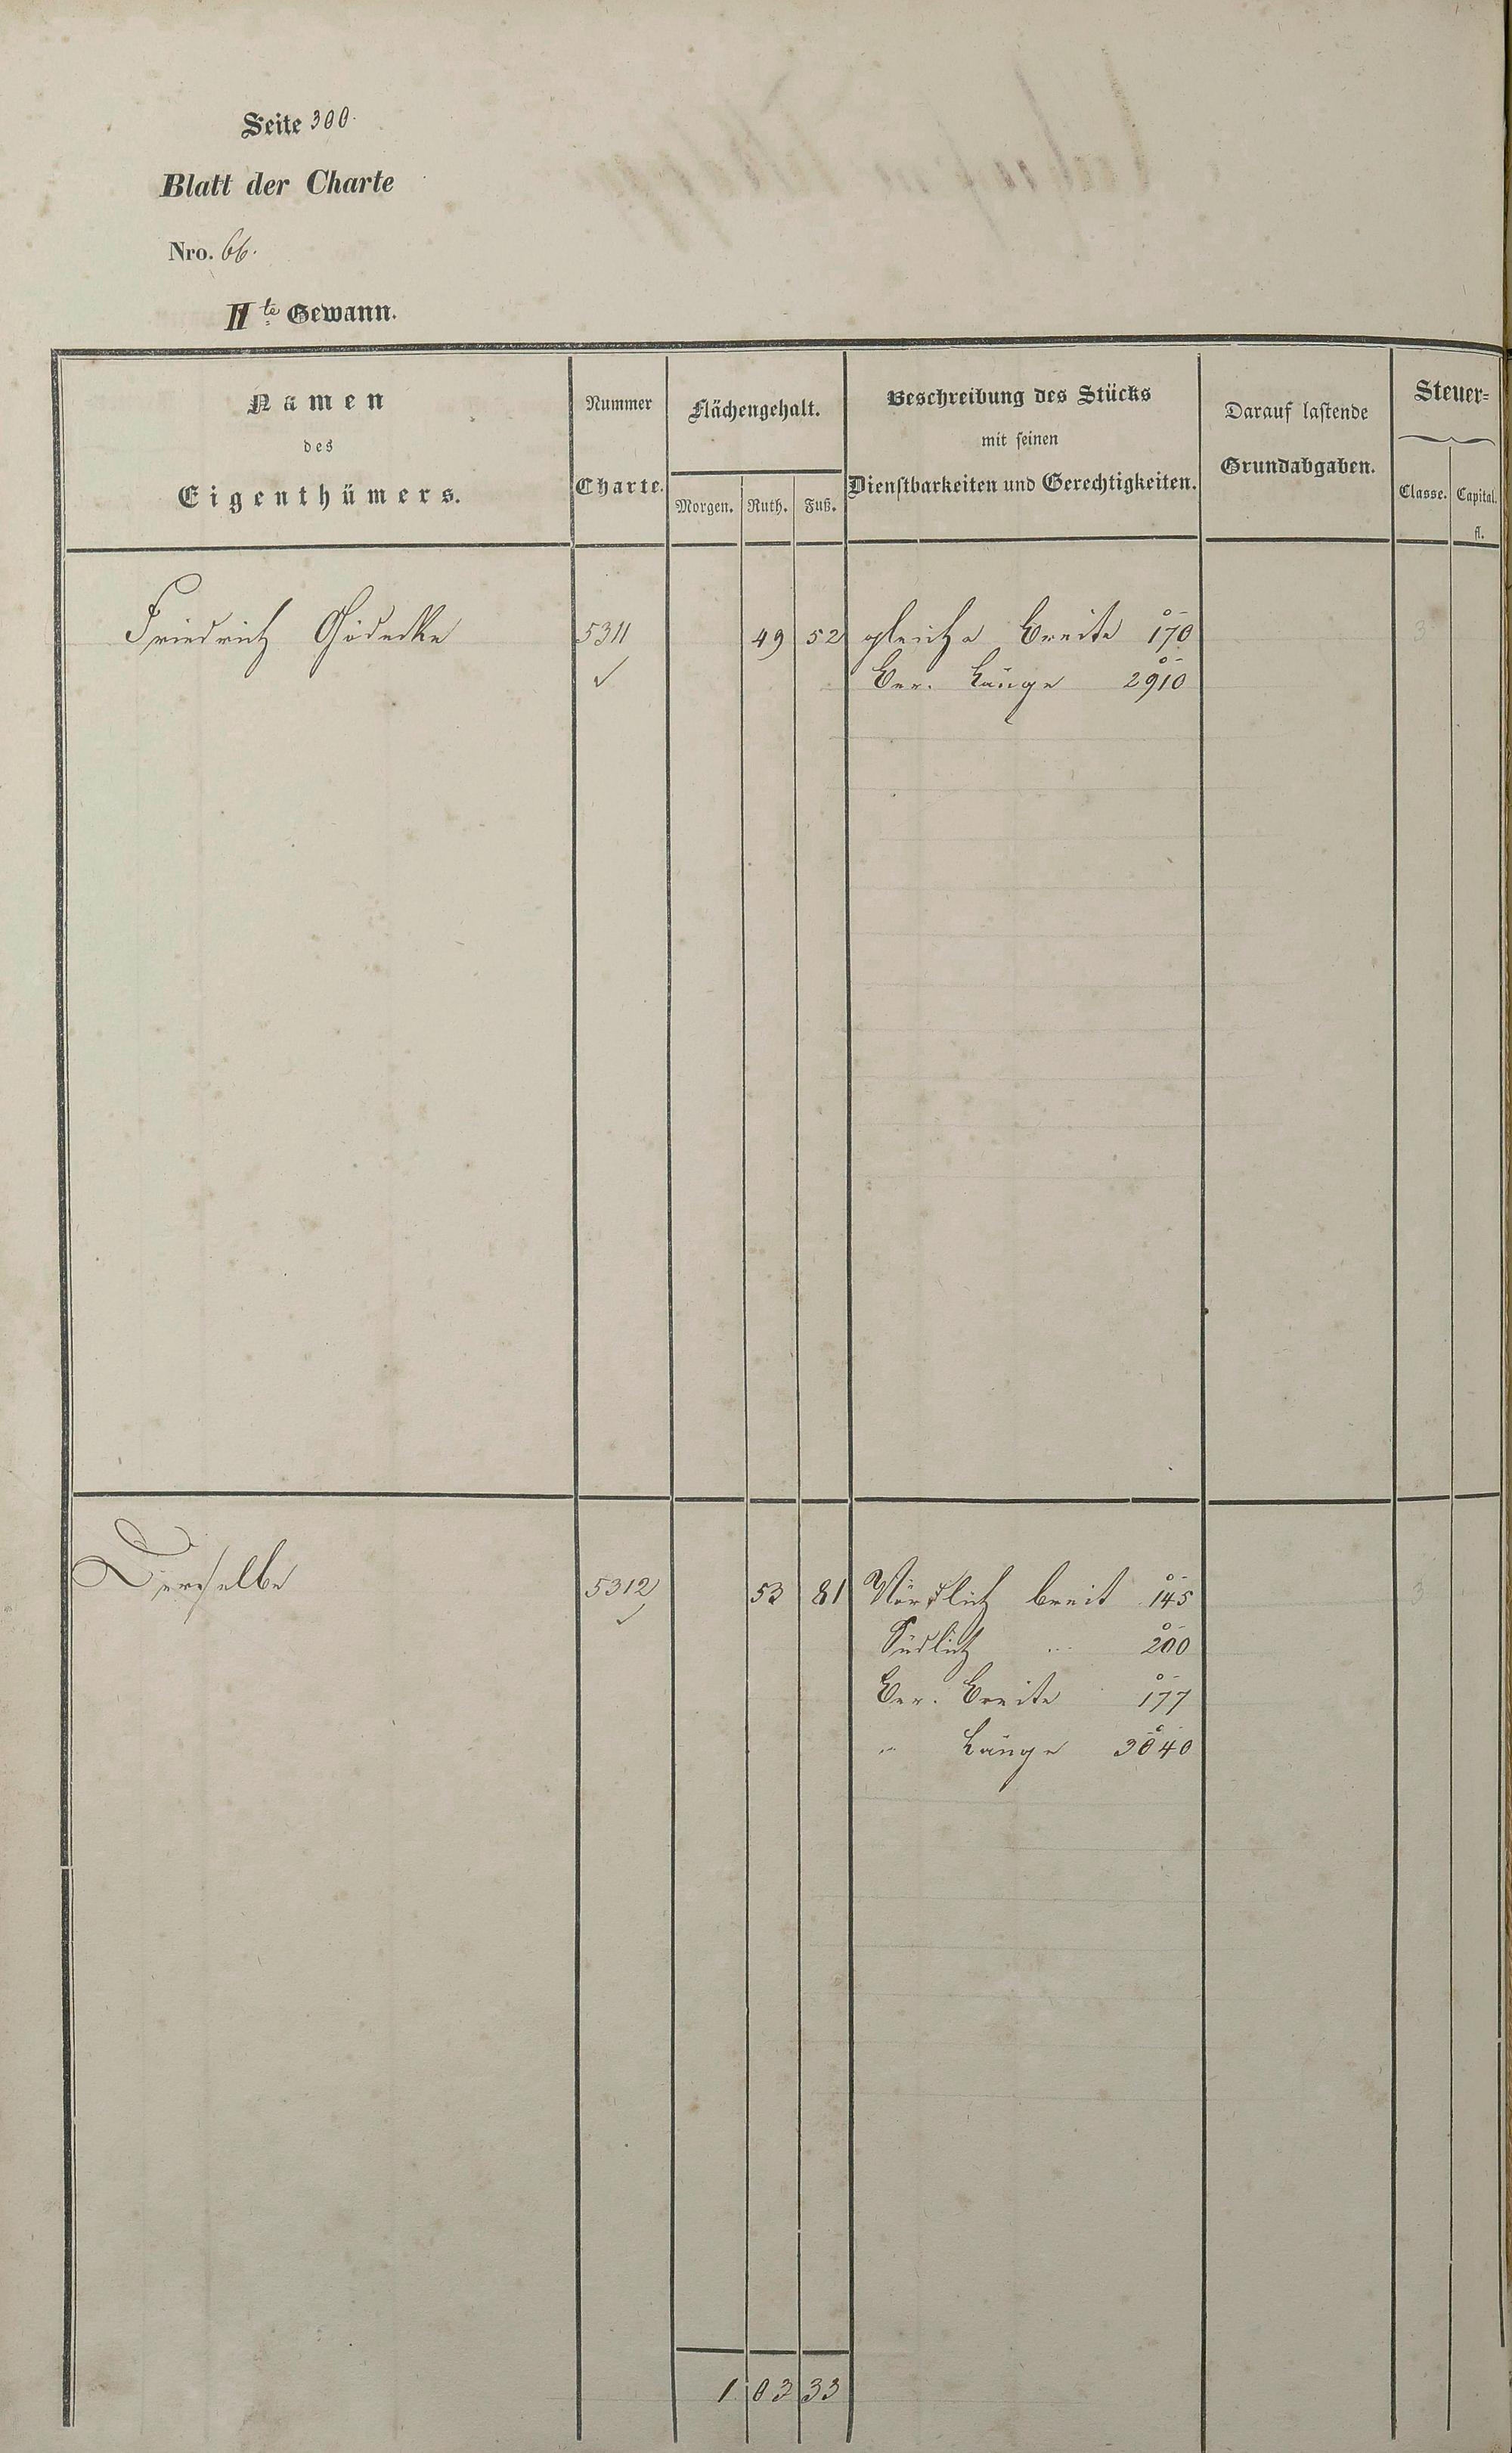 Seite 300.
Blatt der Charte
Nro. 66.
II te Gewann.
Namen
des
Eigenthümers.
Nummer
Charte.
Flächengehalt.
Morgen. Ruth. Fuß.
Beschreibung des Stücks
mit seinen
Dienstbarkeiten und Gerechtigkeiten.
Darauf lastende
Grundabgaben.
Steuer=
Classe. Capital.
fl.
Friedrich Gödecke 5311 49 52 gleiche Breite 170 3
✓ Ber. Länge 2910
Derselbe 5312 53 81 Nördlich breit 145 3
✓ Südlich " 200
Ber. Breite 177
" Länge 3040
1 03 33